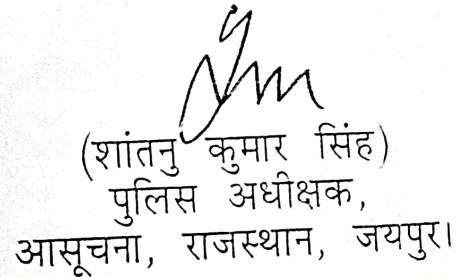 (शांतनु कुमार सिंह)
पुलिस अधीक्षक,
आसूचना, राजस्थान, जयपुर।